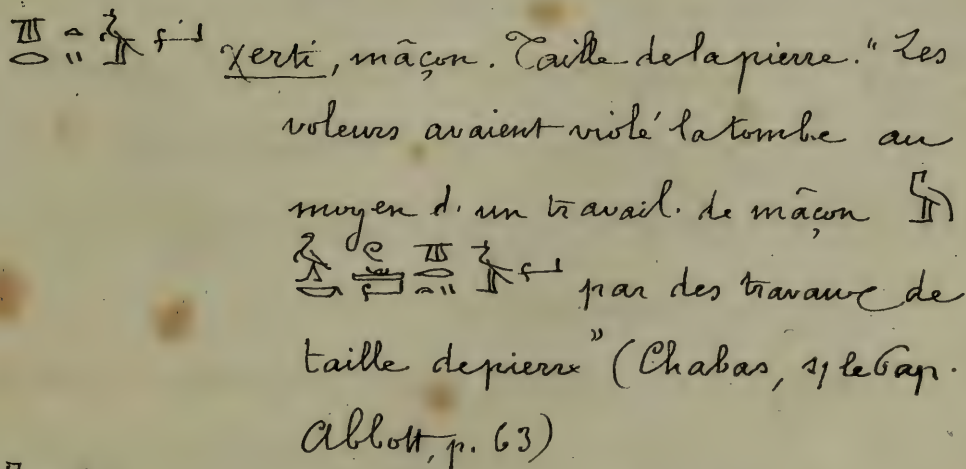 χerti, mâçon. Taille de la pierre. "Les
voleurs avaient violé la tombe au
moyen d'un travail de mâçon
par des travaux de
taille de pierre" (Chabas, s/ le Pap.
Abbott, p. 63)